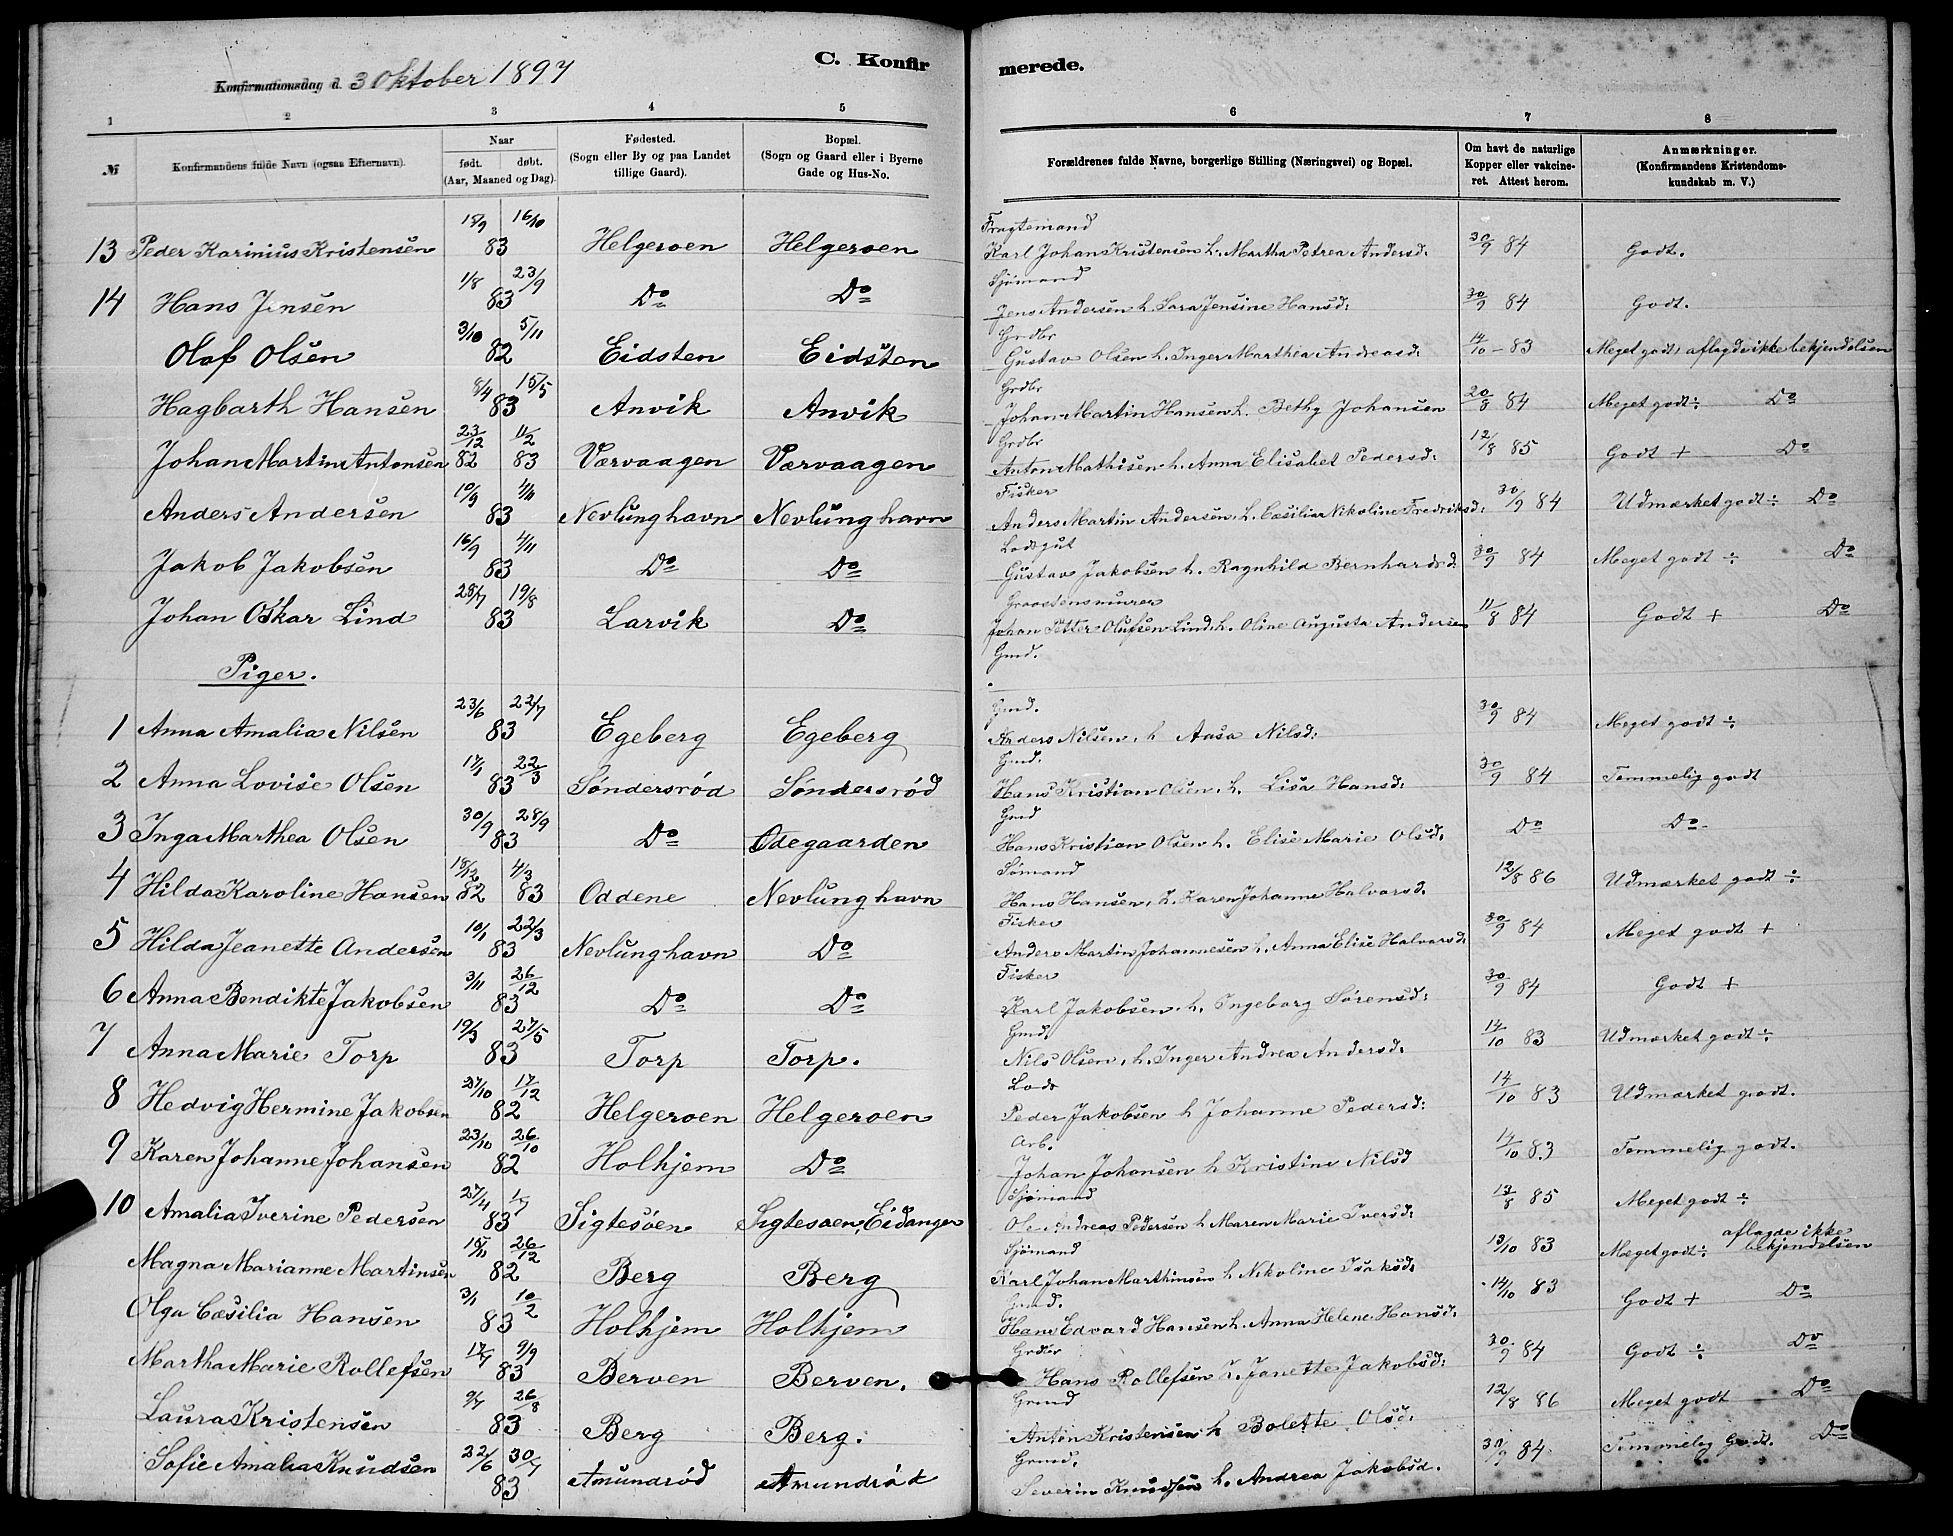 Konfirmationsdag d. 3 Oktober 1897
C. Konfirmerede.
1 2 3 4 5 6 7 8
№ Konfirmandens fulde Navn (ogsaa Efternavn). Naar født. døbt. (Aar, Maaned og Dag). Fødested. (Sogn eller By og paa Landet tillige Gaard). Bopæl. (Sogn og Gaard eller i Byerne Gade og Hus-No. Forældrenes fulde Navne, borgerlige Stilling (Næringsvei) og Bopæl. Om havt de naturlige Kopper eller vakcineret. Attest herom. Anmærkninger. (Konfirmandens Kristendomskundskab m. V.)
13 Peder Karinius Kristensen 18/9 16/10 83 Helgeroen Helgeroen Fragtemand Karl Johan Kristensen h. Martha Petrea Andersd: 30/9 84 Godt.
14 Hans Jensen 1/8 23/9 83 Do Do Sjømand Jens Andersen h. Sara Jensine Hansd: 30/9 84 Godt.
Olaf Olsen 3/10 5/11 82 Eidsten Eidsten Grdbr Gustav Olsen h. Inger Marthea Andreasd: 14/10 - 83 Meget godt, aflagde ikke bekjendelsen
Hagbarth Hansen 8/4 15/5 83 Anvik Anvik Grdbr Johan Martin Hansen h. Bethy Johansen 20/8 84 Meget godt ÷ Do
Johan Martin Antonsen 23/12 82 11/2 83 Værvaagen Værvaagen Grdbr Anton Mathisen h. Anna Elisabet Pedersd: 12/8 85 Godt + Do
Anders Andersen 10/9 4/11 83 Nevlunghavn Nevlunghavn Fisker Anders Martin Andersen, h. Cæsilia Nikoline Fredriksd: 30/9 84 Udmærket godt ÷ Do
Jakob Jakobsen 16/9 4/11 83 Do Do Lodsgut Gustav Jakobsen h. Ragnhild Bernhardsd 30/9 84 Meget godt ÷ Do
Johan Oskar Lind 28/7 19/8 83 Larvik Do Graastensmurer Johan Petter Olufsen Lind, h. Oline Augusta Andersen 11/8 84 Godt + Do
Gmd.
Piger.
1 Anna Amalia Nilsen 23/6 22/7 83 Egeberg Egeberg Gmd. Anders Nilsen, h Aasa Nilsd: 30/9 84 Meget godt ÷
2 Anna Lovise Olsen 17/1 22/3 83 Søndersrød Søndersrød Gmd. Hans Kristian Olsen, h. Lisa Hansd: 30/9 84 Temmelig godt
3 Inga Marthea Olsen 30/9 28/9 83 Do Ødegaarden Gmd Hans Kristian Olsen h. Elise Marie Olsd: Do Do
4 Hilda Karoline Hansen 18/12 82 4/3 83 Oddene Nevlunghavn Sømand Hans Hansen, h. Karen Johanne Halvorsd: 12/8 86 Udmærket godt ÷
5 Hilda Jeanette Andersen 10/1 22/3 83 Nevlunghavn Do Fisker Anders Martin Johannesen h. Anna Elise Halvorsd: 30/9 84 Meget godt +
6 Anna Bendikte Jakobsen 3/11 26/12 83 Do Do Fisker Karl Jakobsen, h. Ingeborg Sørensd: 30/9 84 Godt +
7 Anna Marie Torp 19/3 27/5 83 Torp Torp. Gmd. Nils Olsen, h. Inger Andrea Andersd: 14/10 83 Udmærket godt ÷
8 Hedvig Hermine Jakobsen 27/10 17/12 82 Helgeroen Helgeroen Lods Peder Jakobsen h Johanne Pedersd: 14/10 83 Udmærket godt.
9 Karen Johanne Johansen 23/10 26/10 82 Holhjem Do Arb. Johan Johansen h Kristine Nilsd 14/10 83 Temmelig godt.
10 Amalia Iverine Pedersen 27/4 1/7 83 Sigtesøen Sigtesøen, Eidanger Sjømand Ole Andreas Pedersen h Maren Marie Iversd: 13/8 85 Meget godt ÷
Magna Marianne Martinsen 15/11 26/12 82 Berg Berg Sjømand Karl Johan Marthinsen h Nikoline Isaksd: 13/10 83 Meget godt ÷ aflagde ikke bekjendelsen
Olga Cæsilia Hansen 3/1 10/2 83 Holhjem Holhjem Gmd. Hans Edvard Hansen h. Anna Helene Hansd: 14/10 83 Godt + Do
Martha Marie Rollefsen 17/7 9/9 83 Berven Berven. Grdbr Hans Rollefsen h. Janette Jakobsd: 30/9 84 Godt ÷ Do
Laura Kristensen 9/7 26/8 83 Berg Berg. Grmd Anton Kristensen h Bolette Olsd: 12/8 86 Meget godt Do
Sofie Amalia Knudsen 22/6 30/7 83 Amundrød Amundrød Grmd. Severin Knudsen h. Andrea Jakobsd. 30/9 84 Temmelig Godt. Do